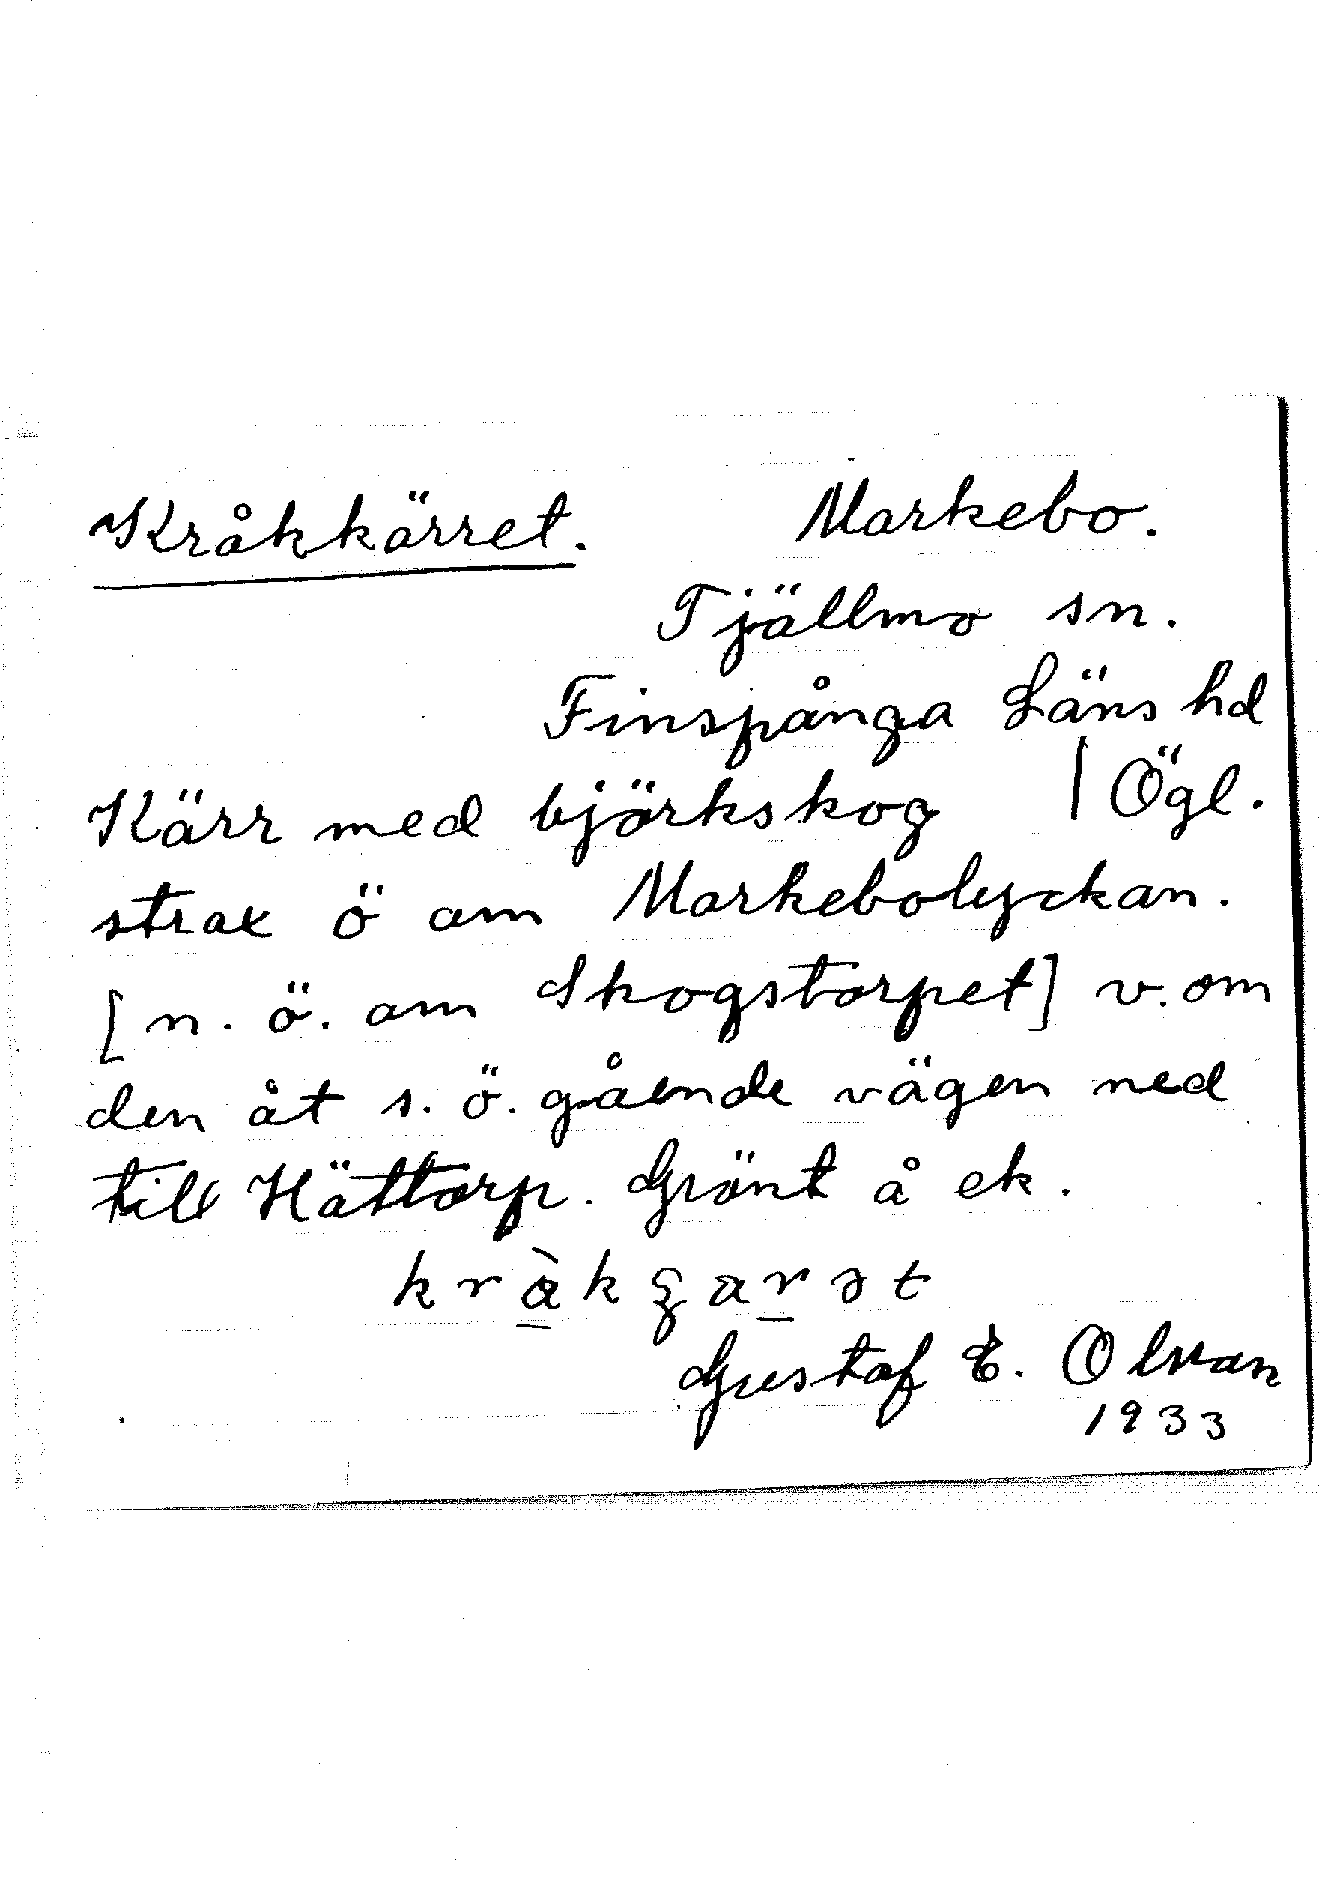 Kråkkärret. Markebo.
Tjällmo sn.
Finspånga Läns hd
Kärr med björkskog | Ögl.
strax ö om Markebolyckan.
[n. ö. om Skogstorpet] v. om
den åt s. ö. gående vägen ned
till Hättorp. Grönt å ek.
Gustaf E. Olvan
1933